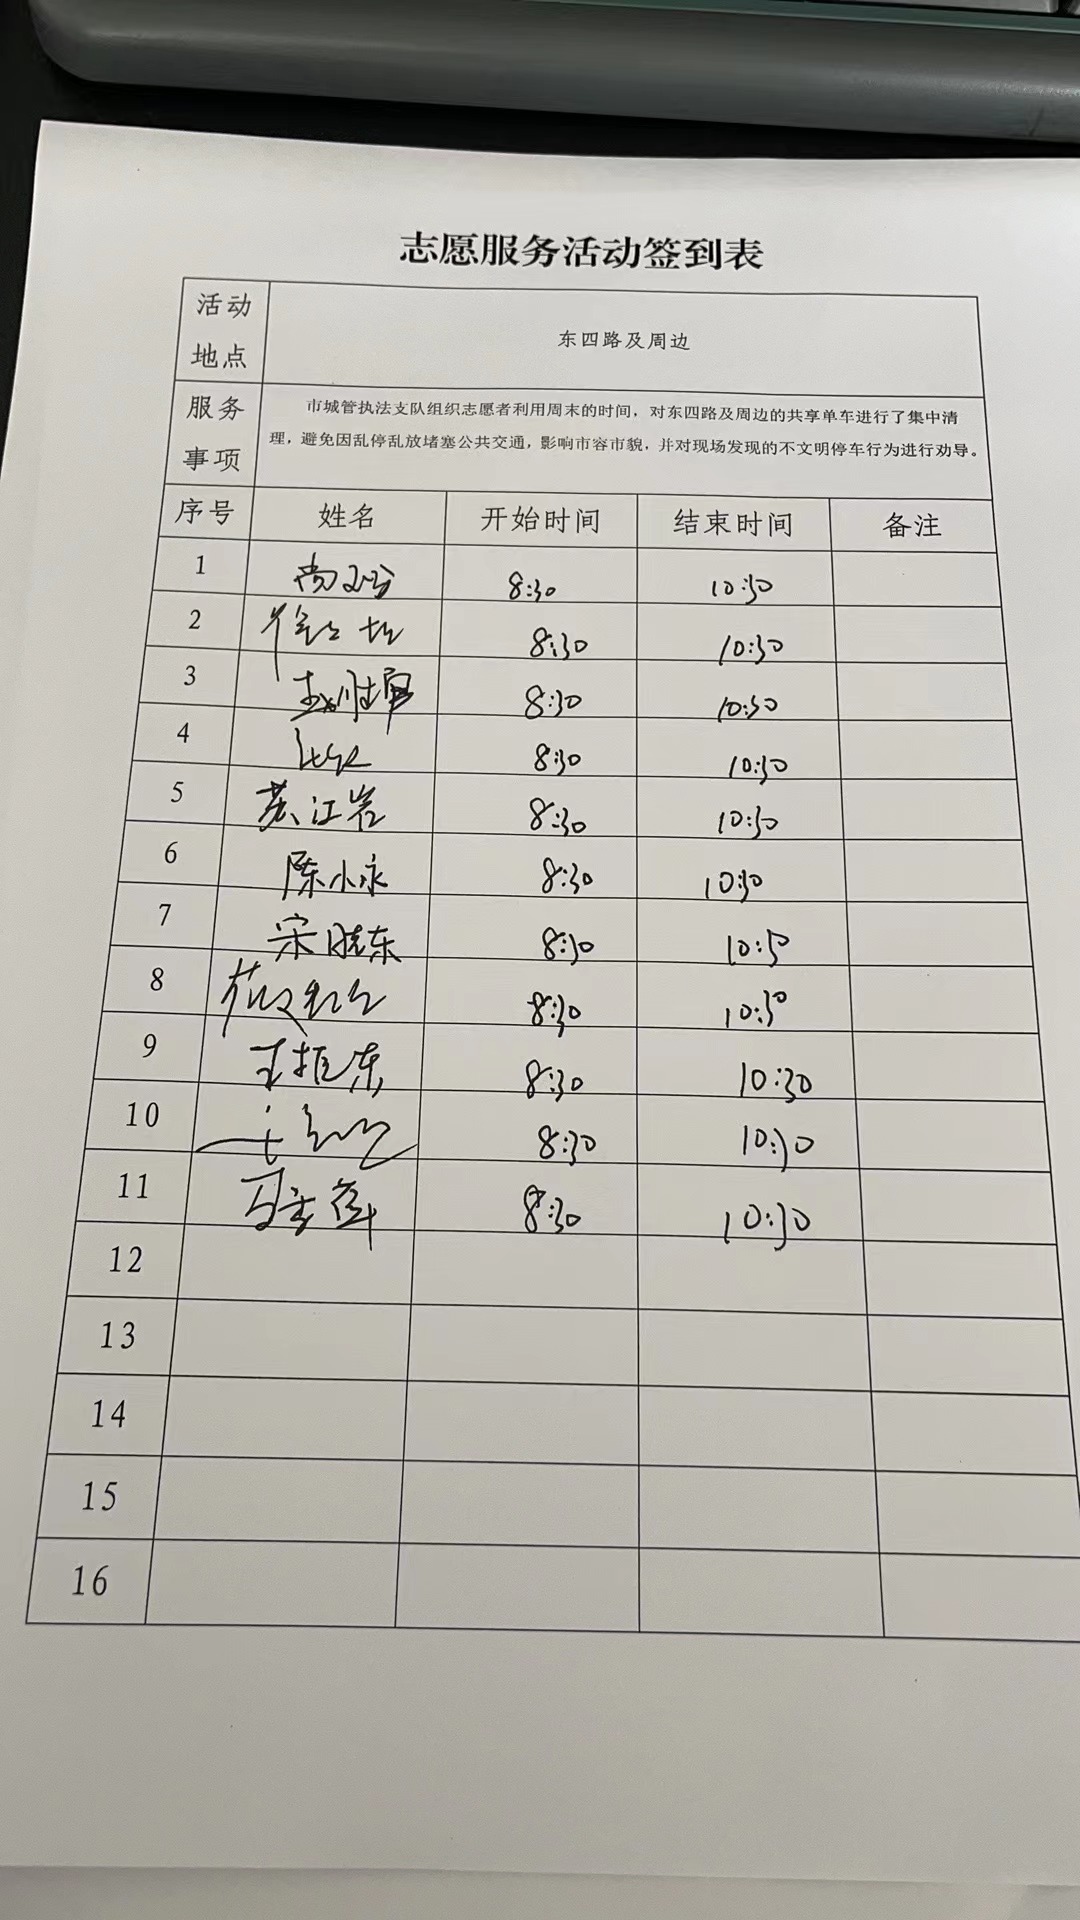 志愿服务活动签到表
活动地点
东四路及周边
服务事项
市城管执法支队组织志愿者利用周末的时间，对东四路及周边的共享单车进行了集中清
理，避免因乱停乱放堵塞公共交通，影响市容市貌，并对现场发现的不文明停车行为进行劝导。
序号 姓名 开始时间 结束时间 备注
1 8:30 10:30
2 8:30 10:30
3 8:30 10:30
4 8:30 10:30
5 苏江岩 8:30 10:30
6 陈小永 8:30 10:30
7 宋晓东 8:30 10:30
8 8:30 10:30
9 王振东 8:30 10:30
10 8:30 10:30
11 8:30 10:30
12
13
14
15
16